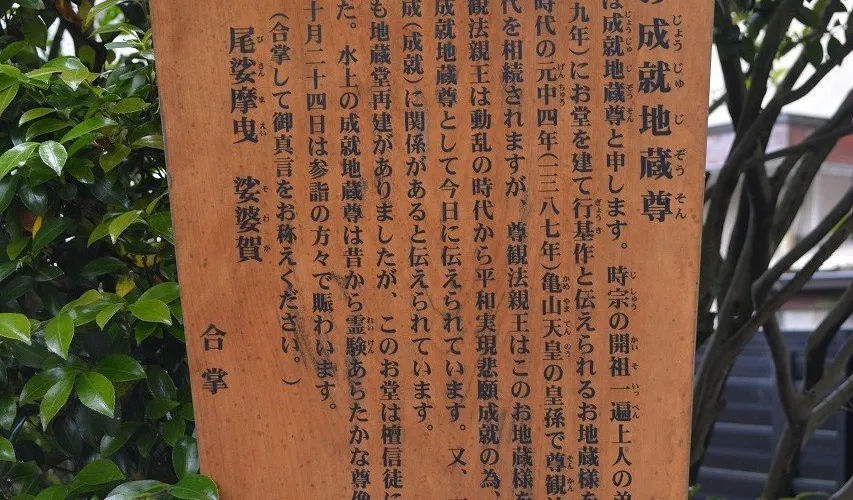 の成就地蔵尊
は成就地蔵尊と申します。時宗の開祖一遍上人の弟
九年）にお堂を建て行基作と伝えられるお地蔵様を
時代の元中四年（一三八七年）亀山天皇の皇孫で尊観法
代を相続されますが、尊観法親王はこのお地蔵様を
観法親王は動乱の時代から平和実現悲願成就の為、
成就地蔵尊として今日に伝えられています。又、
成（成就）に関係があると伝えられています。
も地蔵堂再建がありましたが、このお堂は檀信徒に
た。水上の成就地蔵尊は昔から霊験あらたかな尊像
十月二十四日は参詣の方々で賑わいます。
（合掌して御真言をお称えください。）
尾娑摩曳　娑婆賀
合掌